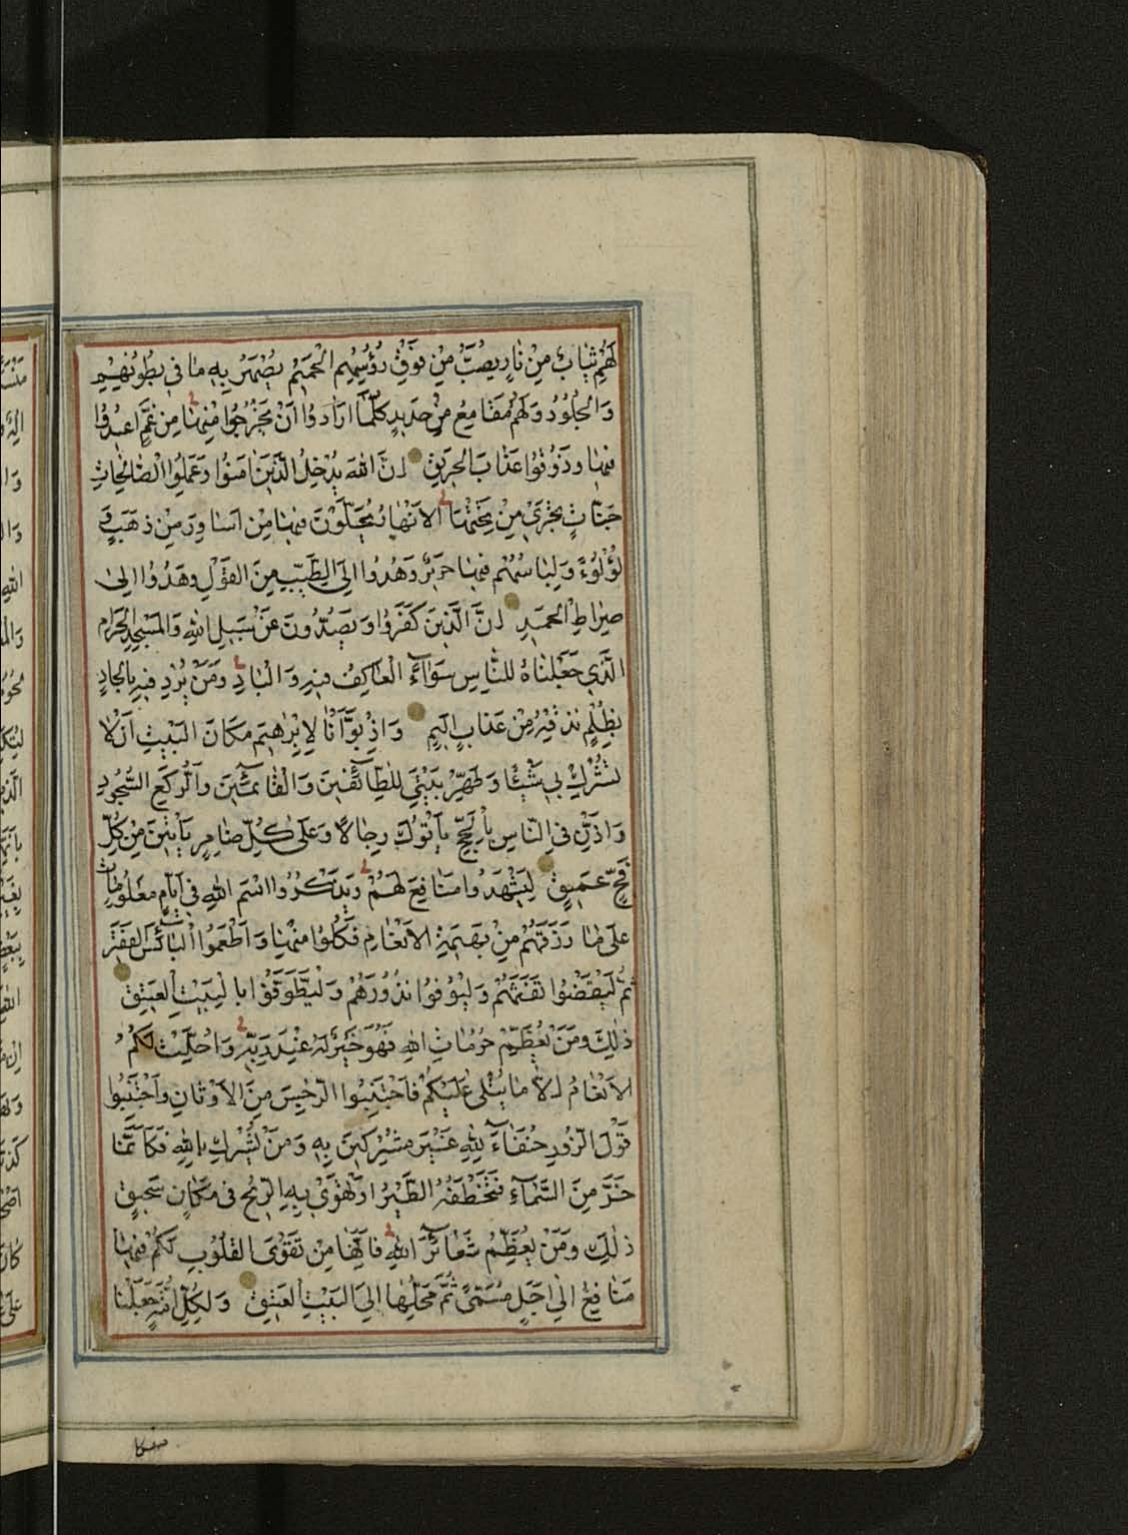 لَهُمْ ثِيَابٌ مِنْ نَارٍ يُصَبُّ مِنْ فَوْقِ رُؤُسِهِمُ الْحَمِيمُ يُصْهَرُ بِهِ مَا فِي بُطُونِهِمْ
وَالْجُلُودُ وَلَهُمْ مَقَامِعُ مِنْ حَدِيدٍ كُلَّمَا أَرَادُوا أَنْ يَخْرُجُوا مِنْهَا مِنْ غَمٍّ أُعِيدُوا
فِيهَا وَذُوقُوا عَذَابَ الْحَرِيقِ إِنَّ اللّٰهَ يُدْخِلُ الَّذِينَ اٰمَنُوا وَعَمِلُوا الصَّالِحَاتِ
جَنَّاتٍ تَجْرِي مِنْ تَحْتِهَا الْأَنْهَارُ يُحَلَّوْنَ فِيهَا مِنْ أَسَاوِرَ مِنْ ذَهَبٍ وَ
لُؤْلُوءً وَلِبَاسُهُمْ فِيهَا حَرِيرٌ وَهُدُوا إِلَى الطَّيِّبِ مِنَ الْقَوْلِ وَهُدُوا إِلَى
صِرَاطِ الْحَمِيدِ إِنَّ الَّذِينَ كَفَرُوا وَيَصُدُّونَ عَنْ سَبِيلِ اللّٰهِ وَالْمَسْجِدِ الْحَرَامِ
الَّذِي جَعَلْنَاهُ لِلنَّاسِ سَوَآءً الْعَاكِفُ فِيهِ وَالْبَادِ وَمَنْ يُرِدْ فِيهِ بِالْحَادٍ
بِظُلْمٍ نُذِقْهُ مِنْ عَذَابٍ أَلِيمٍ وَإِذْ بَوَّأْنَا لِإِبْرٰهِيمَ مَكَانَ الْبَيْتِ أَنْ لَا
تُشْرِكْ بِي شَيْئًا وَطَهِّرْ بَيْتِيَ لِلطَّآئِفِينَ وَالْقَآئِمِينَ وَالرُّكَّعِ السُّجُودِ
وَأَذِّنْ فِي النَّاسِ بِالْحَجِّ يَأْتُوكَ رِجَالًا وَعَلَى كُلِّ ضَامِرٍ يَأْتِينَ مِنْ كُلِّ
فَجٍّ عَمِيقٍ لِيَشْهَدُوا مَنَافِعَ لَهُمْ وَيَذْكُرُوا اسْمَ اللّٰهِ فِي أَيَّامٍ مَعْلُومَاتٍ
عَلَى مَا رَزَقَهُمْ مِنْ بَهِيمَةِ الْأَنْعَامِ فَكُلُوا مِنْهَا وَأَطْعِمُوا الْبَآئِسَ الْفَقِيرَ
ثُمَّ لْيَقْضُوا تَفَثَهُمْ وَلْيُوفُوا نُذُورَهُمْ وَلْيَطَّوَّفُوا بِالْبَيْتِ الْعَتِيقِ
ذٰلِكَ وَمَنْ يُعَظِّمْ حُرُمَاتِ اللّٰهِ فَهُوَ خَيْرٌ لَهُ عِنْدَ رَبِّهِ وَأُحِلَّتْ لَكُمُ
الْأَنْعَامُ إِلَّا مَا يُتْلٰى عَلَيْكُمْ فَاجْتَنِبُوا الرِّجْسَ مِنَ الْأَوْثَانِ وَاجْتَنِبُوا
قَوْلَ الزُّورِ حُنَفَآءَ لِلّٰهِ غَيْرَ مُشْرِكِينَ بِهِ وَمَنْ يُشْرِكْ بِاللّٰهِ فَكَأَنَّمَا
خَرَّ مِنَ السَّمَآءِ فَتَخْطَفُهُ الطَّيْرُ أَوْ تَهْوِي بِهِ الرِّيحُ فِي مَكَانٍ سَحِيقٍ
ذٰلِكَ وَمَنْ يُعَظِّمْ شَعَآئِرَ اللّٰهِ فَإِنَّهَا مِنْ تَقْوَى الْقُلُوبِ لَكُمْ فِيهَا
مَنَافِعُ إِلَى أَجَلٍ مُسَمًّى ثُمَّ مَحِلُّهَا إِلَى الْبَيْتِ الْعَتِيقِ وَلِكُلِّ أُمَّةٍ جَعَلْنَا